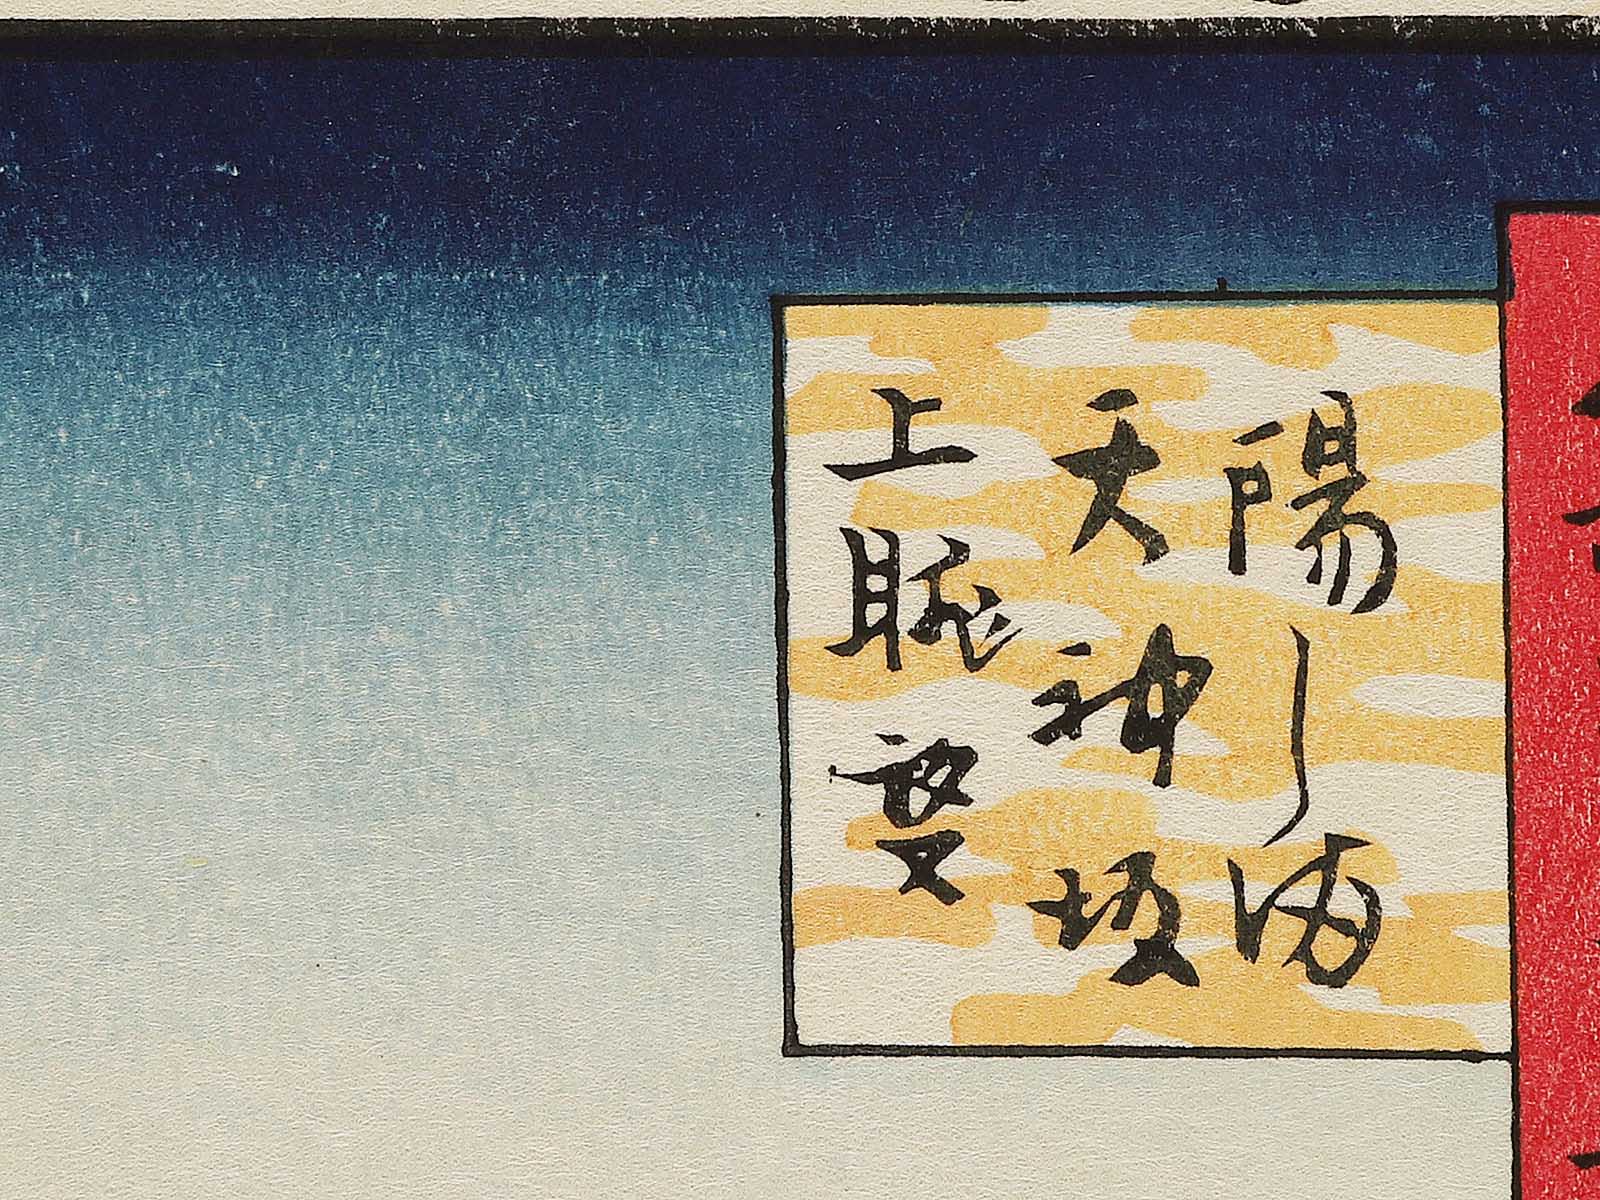 湯しま
天神坂
上眺望